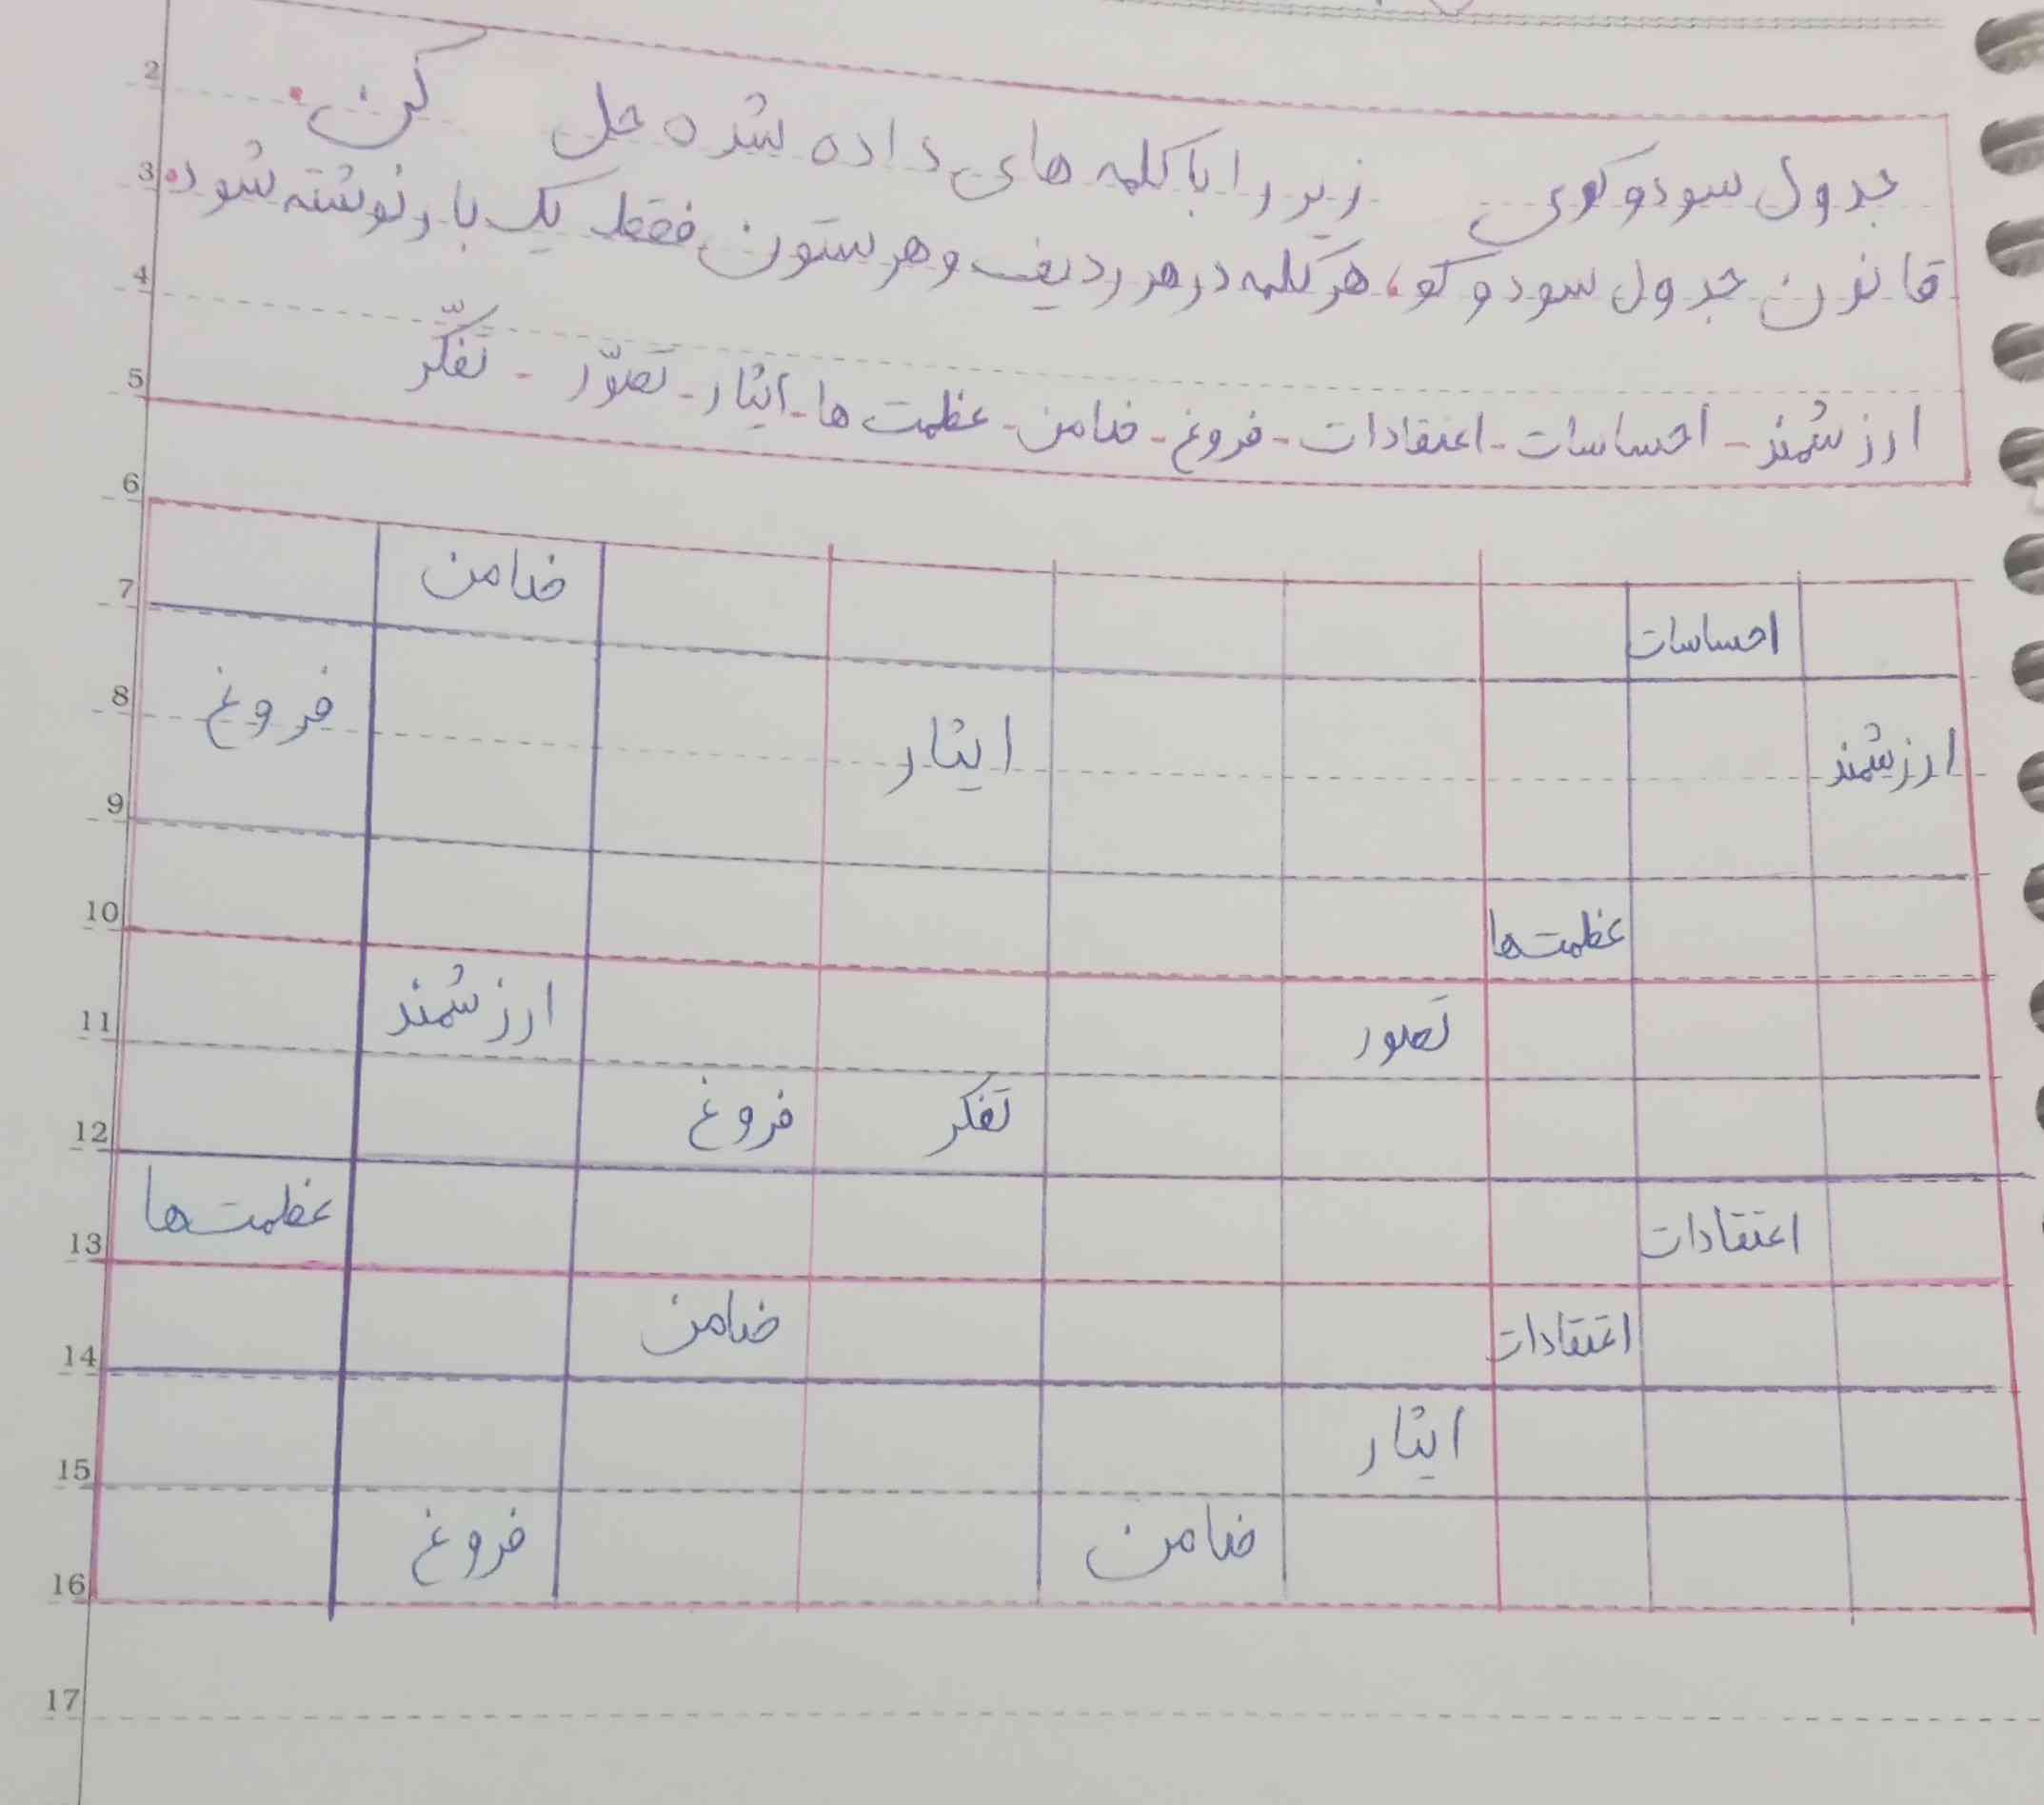 جدول سودوکوی زیر را با کلمه های داده شده حل کن.
قانون جدول سودوکو، هر کلمه در هر ردیف و هر ستون فقط یک بار نوشته شود.
ارزشمند - احساسات - اعتقادات - فروغ - ضامن - عظمت ها - ایثار - تَصوّر - تَفکّر
احساسات ضامن
ارزشمند ایثار فروغ
عظمت ها
تَصور ارزشمند
تَفکر فروغ
اعتقادات عظمت ها
اعتقادات ضامن
ایثار
ضامن فروغ
2
3
4
5
6
7
8
9
10
11
12
13
14
15
16
17